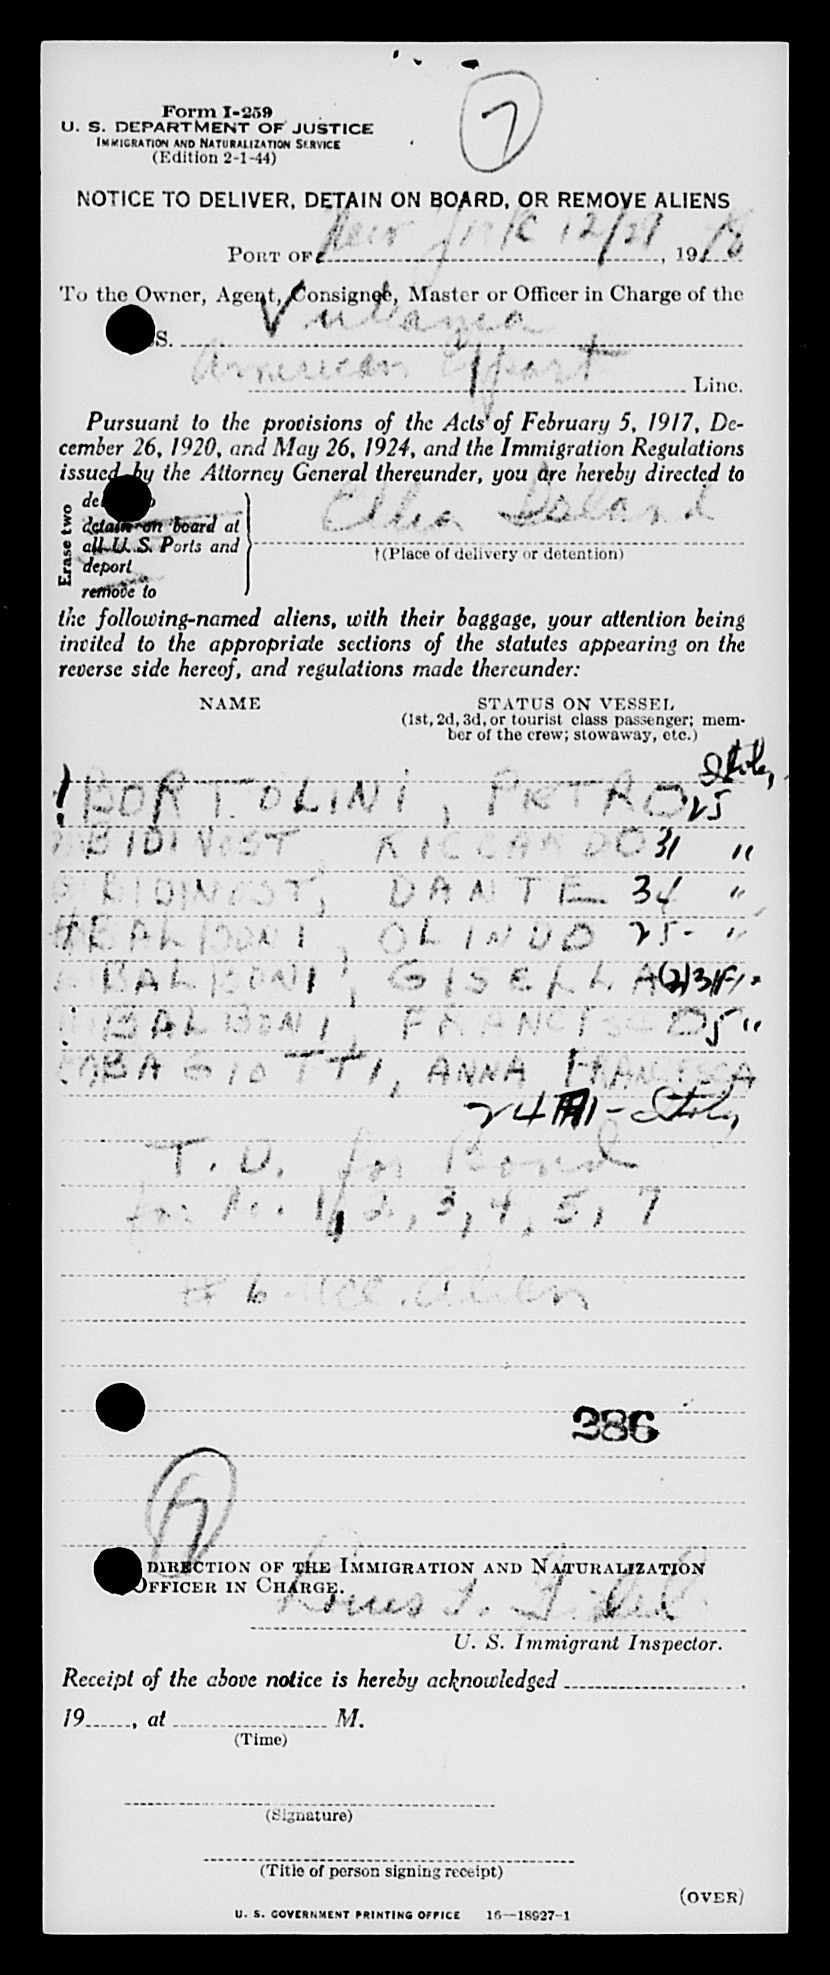 7
Form I-259
U. S. DEPARTMENT OF JUSTICE
IMMIGRATION AND NATURALIZATION SERVICE
(Edition 2-1-44)
NOTICE TO DELIVER, DETAIN ON BOARD, OR REMOVE ALIENS
PORT OF New York 12/29, 19
To the Owner, Agent, Consignee, Master or Officer in Charge of the
S. Vulcania
American Export Line.
Pursuant to the provisions of the Acts of February 5, 1917, De-
cember 26, 1920, and May 26, 1924, and the Immigration Regulations
issued by the Attorney General thereunder, you are hereby directed to
Erase two
detain on board at
all U. S. Ports and
deport
remove to
Ellis Island
†(Place of delivery or detention)
the following-named aliens, with their baggage, your attention being
invited to the appropriate sections of the statutes appearing on the
reverse side hereof, and regulations made thereunder:
NAME STATUS ON VESSEL
(1st, 2d, 3d, or tourist class passenger; mem-
ber of the crew; stowaway, etc.)
Italy
BORTOLINI, PETRO 25
BIDINOST RICCARDO 31 "
BIDINOST, DANTE 34 "
BALBONI, OLINDO 25 - "
BALBONI, GISELLA 31 F "
BALBONI, FRANCESCO 5 "
BAGIOTTI, ANNA FRANCESCA
24 - Italy
T. D. for Bond
for No. 1, 2, 3, 4, 5, 7
# 6 - Acc. Alien
386
7
DIRECTION OF THE IMMIGRATION AND NATURALIZATION
OFFICER IN CHARGE.
Louis
U. S. Immigrant Inspector.
Receipt of the above notice is hereby acknowledged
19, at M.
(Time)
(Signature)
(Title of person signing receipt)
(OVER)
U. S. GOVERNMENT PRINTING OFFICE 16—18927-1